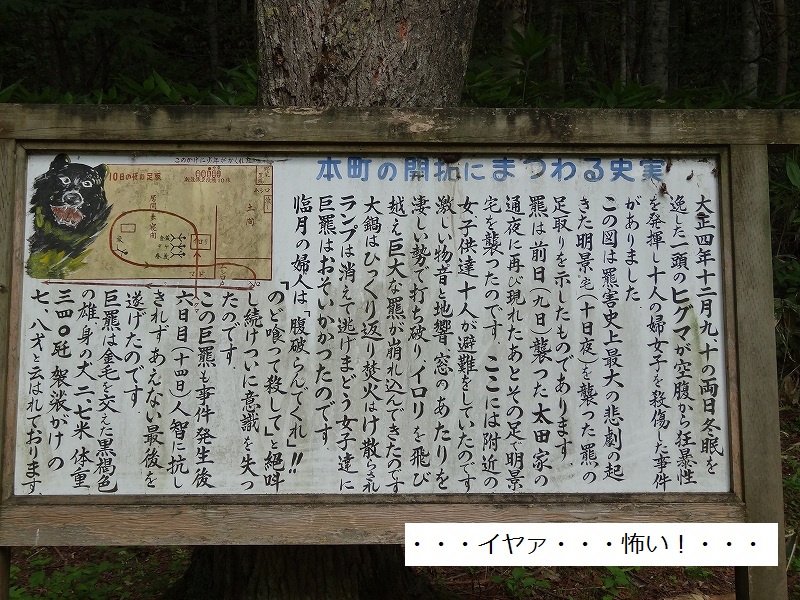 本町の開拓にまつわる史実
大正四年十二月九、十の両日冬眠を
逸した一頭のヒグマが空腹から狂暴性
を発揮し十人の婦女子を殺傷した事件
がありました
この図は羆害史上最大の悲劇の起
きた明景宅(十日夜)を襲った羆の
足取りを示したものであります。
羆は前日(九日)襲った太田家の
通夜に再び現れたあとその足で明景
宅を襲ったのです。ここには附近の
女子供達十人が避難をしていたのです
激しい物音と地響、窓のあたりを
凄しい勢で打ち破りイロリを飛び
越え巨大な羆が崩れ込んできたのです
大鍋はひっくり返り焚火はけ散らされ
ランプは消えて逃げまどう女子達に
巨羆はおそいかかったのです。
臨月の婦人は「腹破らんでくれ」!!
のど喰って殺してと絕叫
し続けついに意識を失っ
たのです。
この巨羆も事件発生後
六日目(十四日)人智に抗し
きれず あえない最後を
遂げたのです
巨羆は金毛を交えた黒褐色
の雄身の丈二、七米 体重
三四〇瓩 袈裟がけの
七、八才と云はれております
10日の夜の足取
土間
・・・イヤァ・・・怖い!・・・